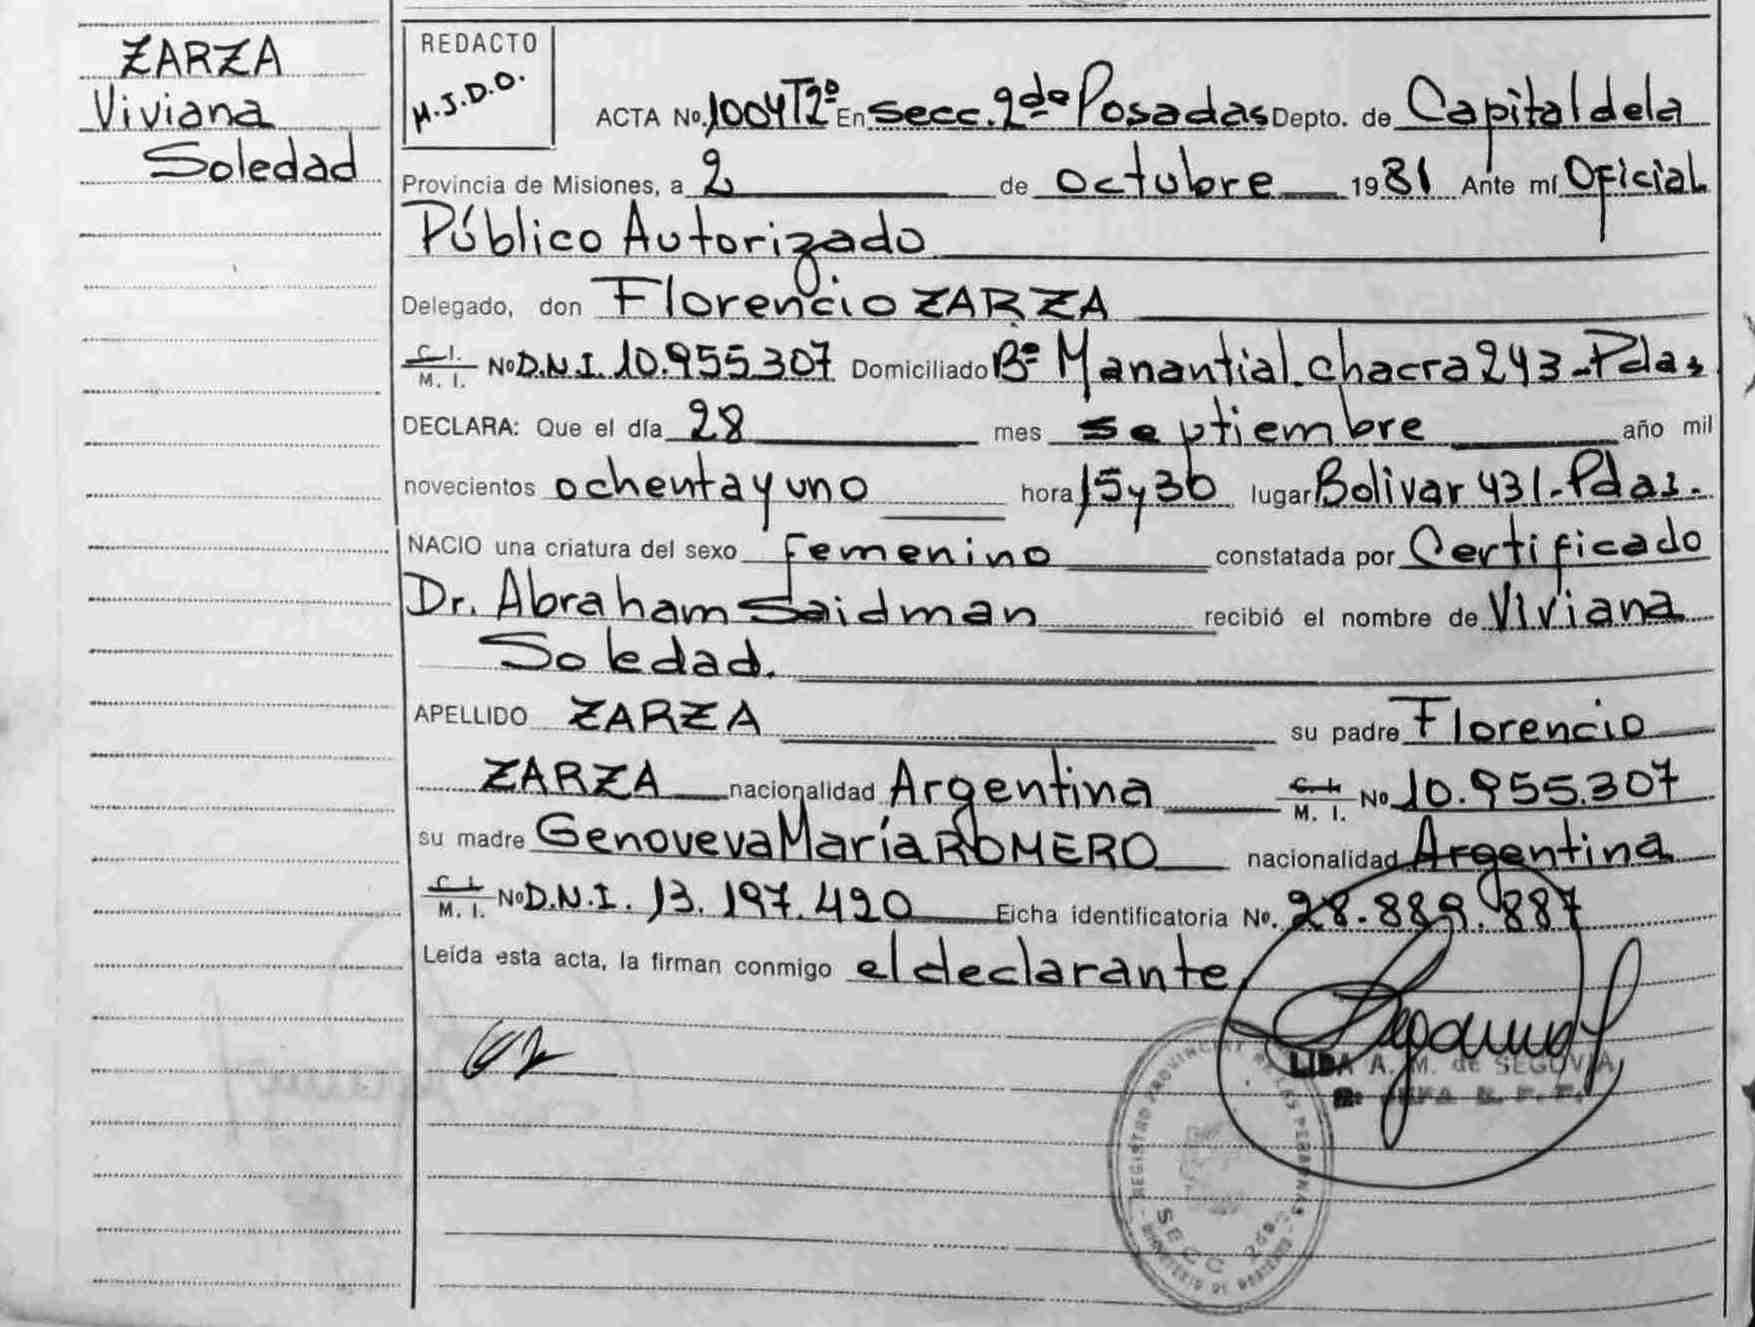 ZARZA
Viviana
Soledad
REDACTO
M.J.D.O.
ACTA No. 1004T2º En secc. 2da Posadas Depto. de Capital de la
Provincia de Misiones, a 2 de octubre 1981 Ante mí Oficial
Público Autorizado
Delegado, don Florencio ZARZA
C. I. / M. I. No D.N.I. 10.955.307 Domiciliado Bº Manantial. chacra 243 - Pdas
DECLARA: Que el día 28 mes septiembre año mil
novecientos ochenta y uno hora 15 y 30 lugar Bolivar 431 - Pdas.
NACIO una criatura del sexo femenino constatada por Certificado
Dr. Abraham Saidman recibió el nombre de Viviana
Soledad.
APELLIDO ZARZA su padre Florencio
ZARZA nacionalidad Argentina C. I. / M. I. No 10.955.307
su madre Genoveva María ROMERO nacionalidad Argentina
C. I. / M. I. No D.N.I. 13.197.420 Ficha identificatoria No. 28.889.887
Leída esta acta, la firman conmigo el declarante
LIDA A. M. de SEGOVIA
REGISTRO PROVINCIAL DE LAS PERSONAS
SECC 2da